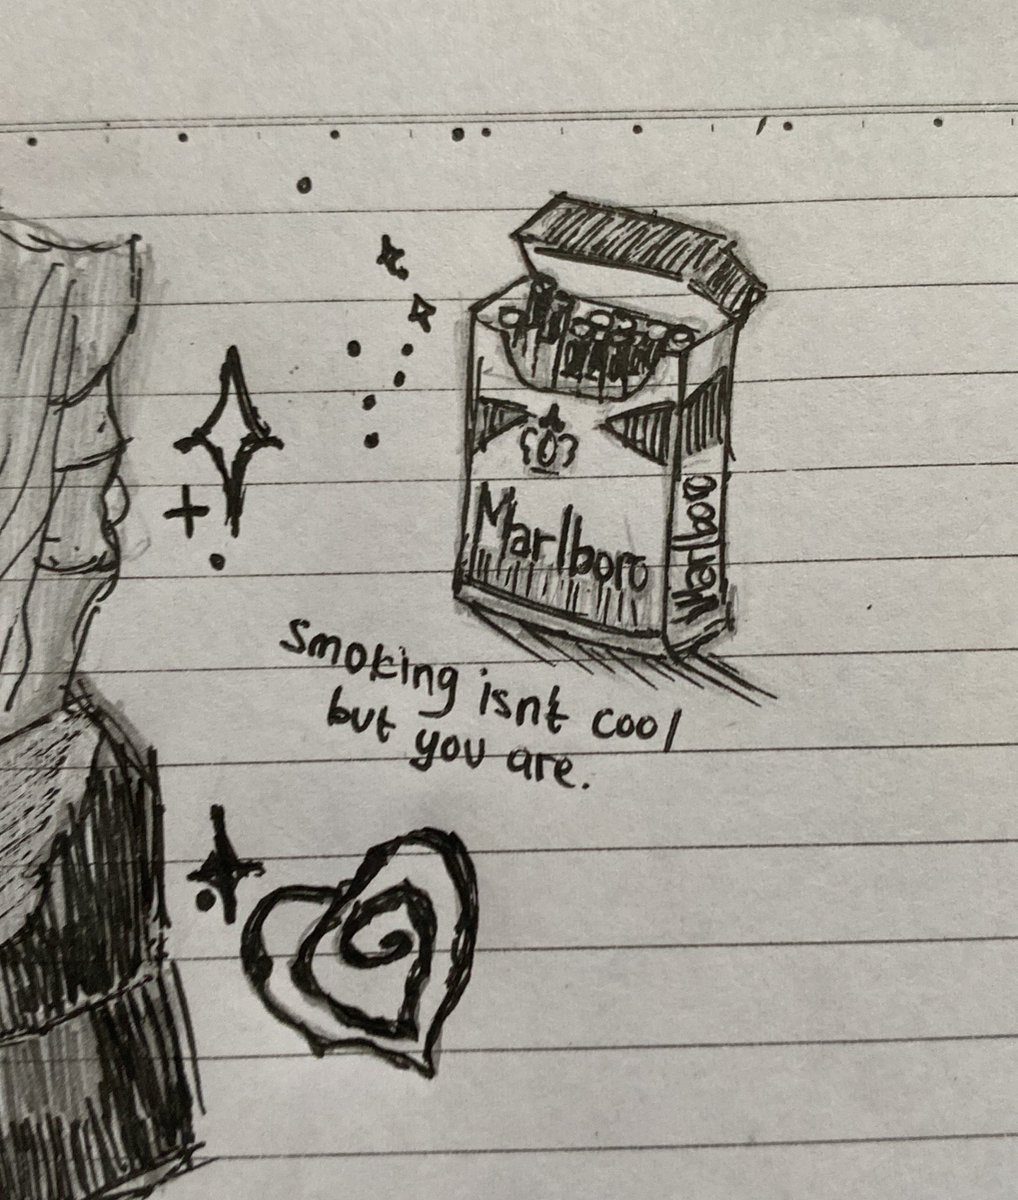 Marlboro
Marlboro
smoking isnt cool
but you are.